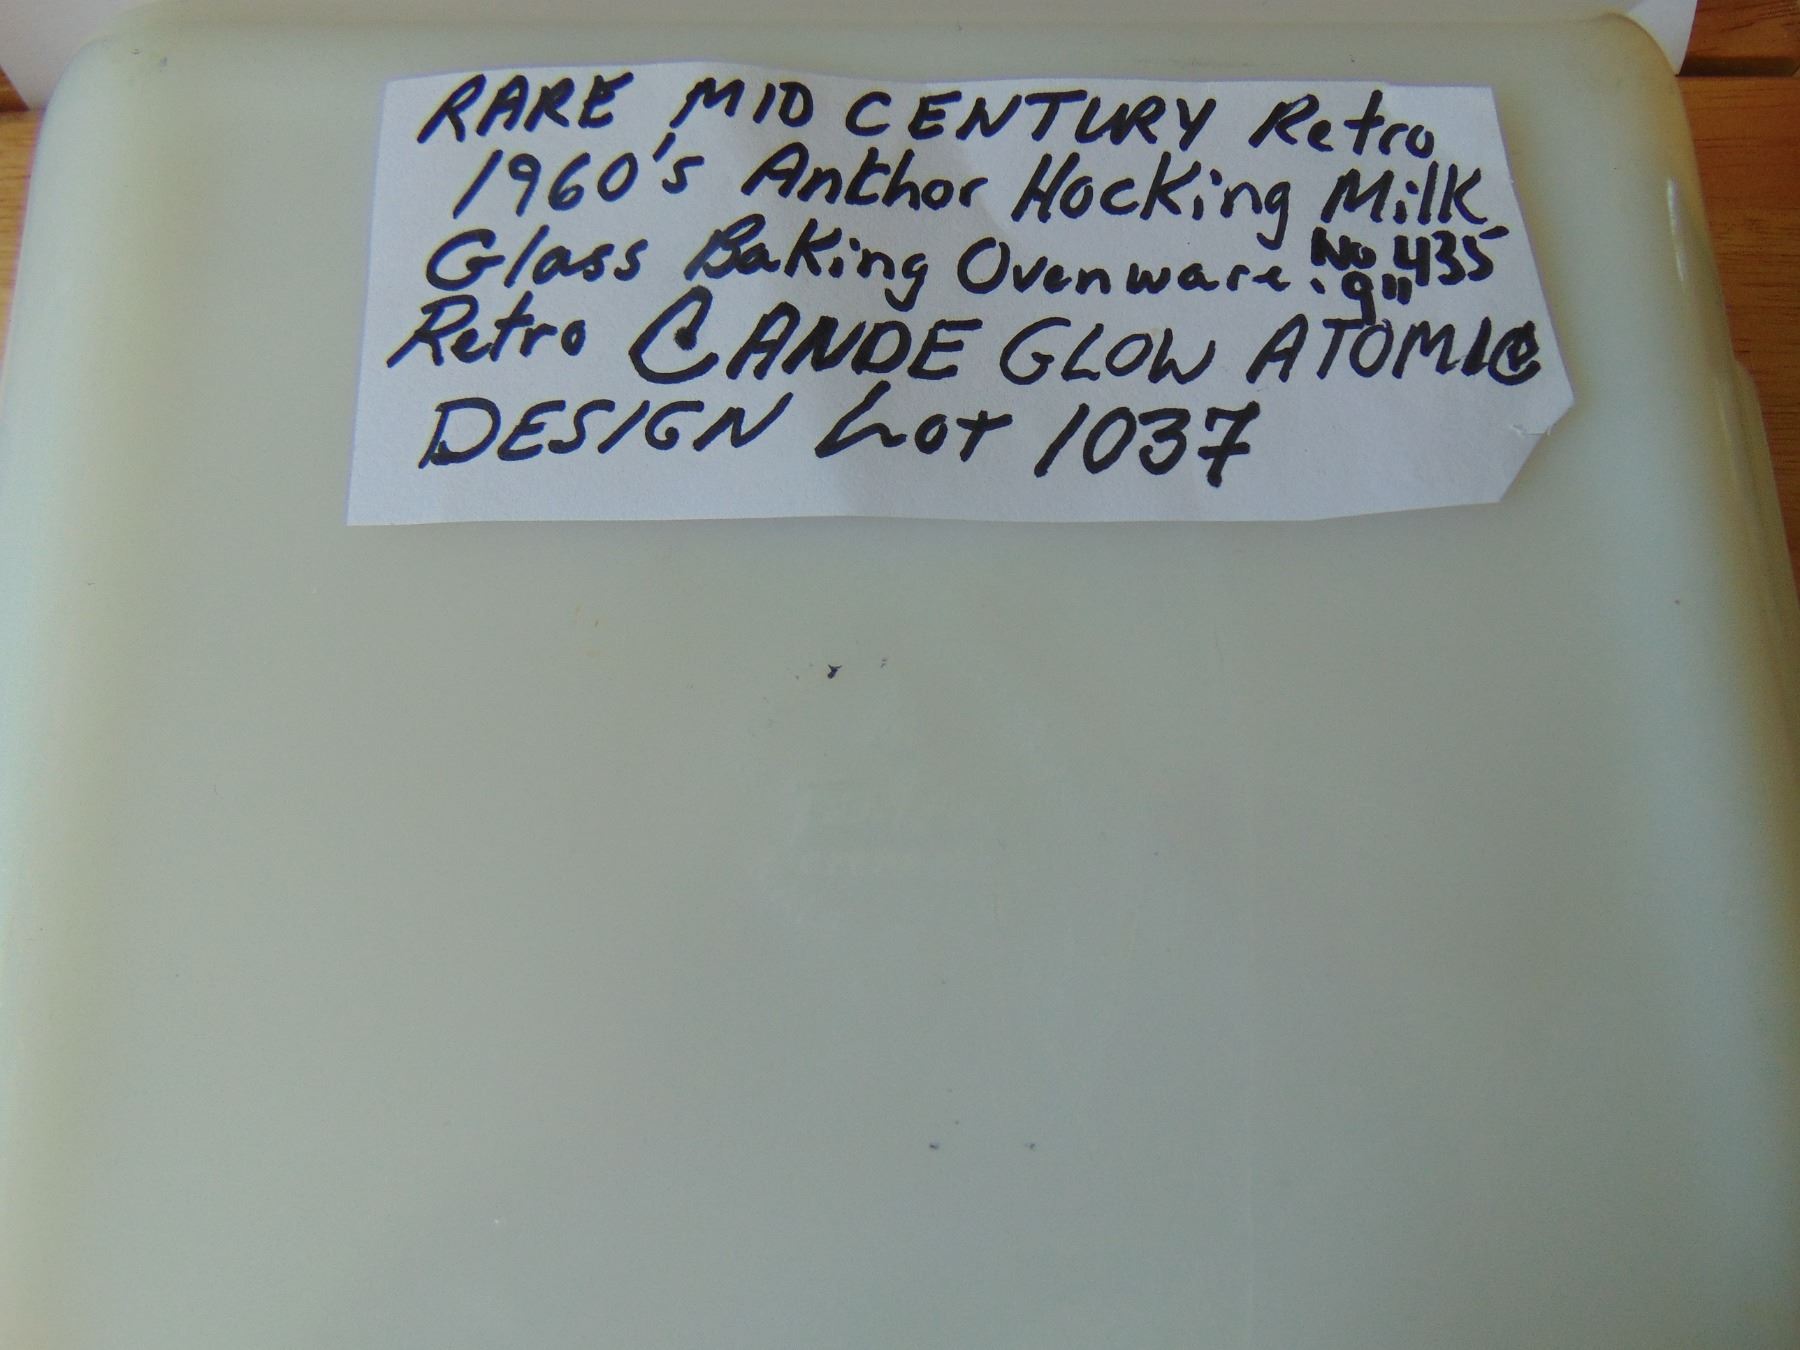 RARE MID CENTURY Retro
1960's Ankhor Hocking Milk
Glass Baking Ovenware No 435
9"
Retro CANDE GLOW ATOMIC
DESIGN Lot 1037